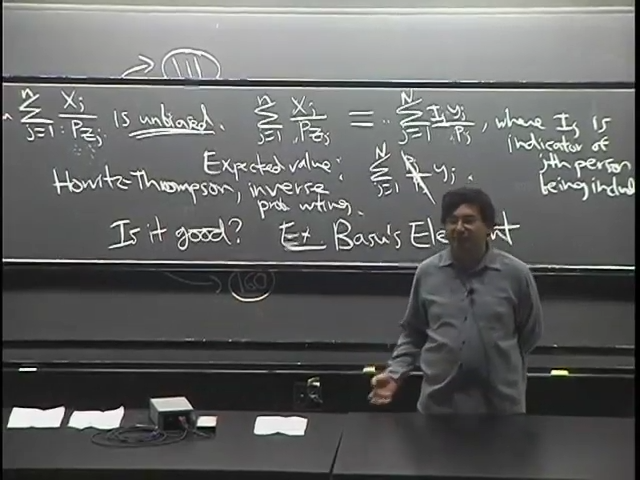 111
n Σ j=1 Xj / pZj is unbiased. n Σ j=1 Xj / pZj = N Σ j=1 Ij yj / pj, where Ij is
indicator of
jth person
being includ
Expected value: N Σ j=1 yj.
Horvitz-Thompson, inverse
prob wting.
Is it good? Ex Basu's Ele nt
160